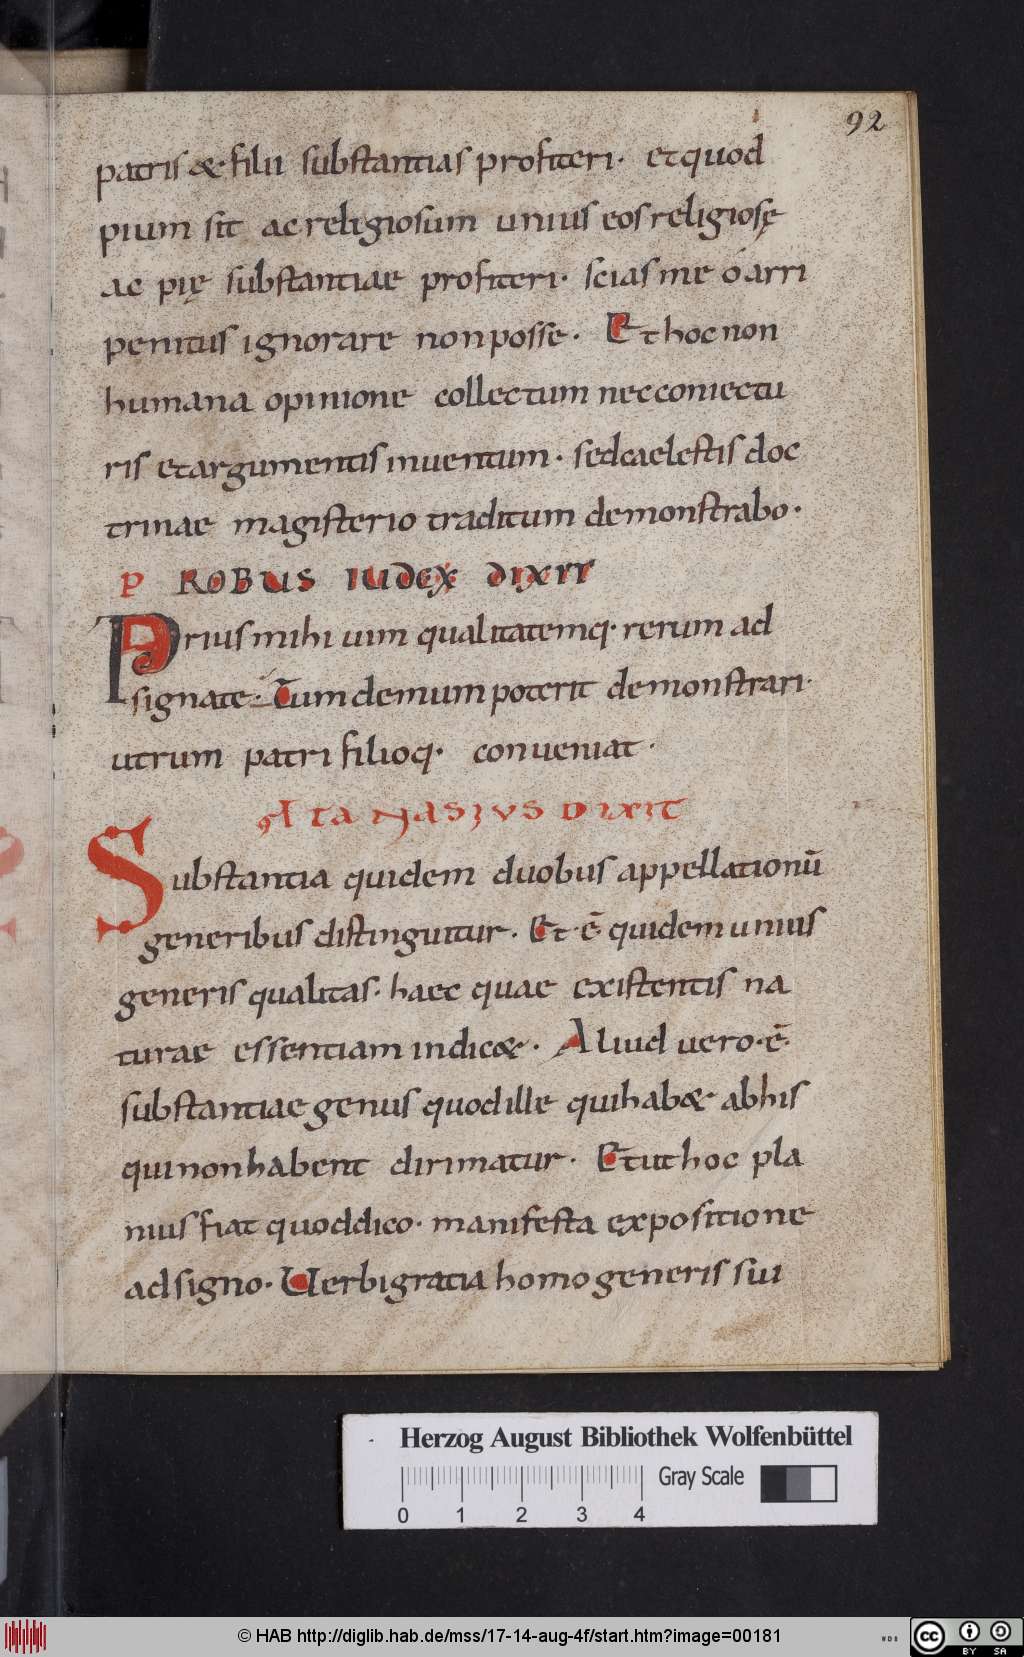 92
patris & filii substantias profiteri· et quod
pium sit ac religiosum unius eos religiosę
ac pię substantiae profiteri· scias me o arri
penitus ignorare non posse· Et hoc non
humana opinione collectum nec coniectu
ris et argumentis inuentum· sed caelestis doc
trinae magisterio traditum demonstrabo·
PROBUS IUDEX DIXIT
Prius mihi uim qualitatemq· rerum ad
signate· Tum demum poterit demonstrari·
utrum patri filioq· conueniat·
ATANASIVS DIXIT
Substantia quidem duobus appellationū
generibus distinguitur· Et ē quidem unius
generis qualitas· haec quae existentis na
turae essentiam indic&· Aliud uero· ē·
substantiae genus quod ille qui hab& ab his
qui non habent dirimatur· Et ut hoc pla
nius fiat quod dico· manifesta expositione
adsigno· Uerbi gratia homo generis sui
Herzog August Bibliothek Wolfenbüttel
Gray Scale
0 1 2 3 4
© HAB http://diglib.hab.de/mss/17-14-aug-4f/start.htm?image=00181
WDB
cc BY SA